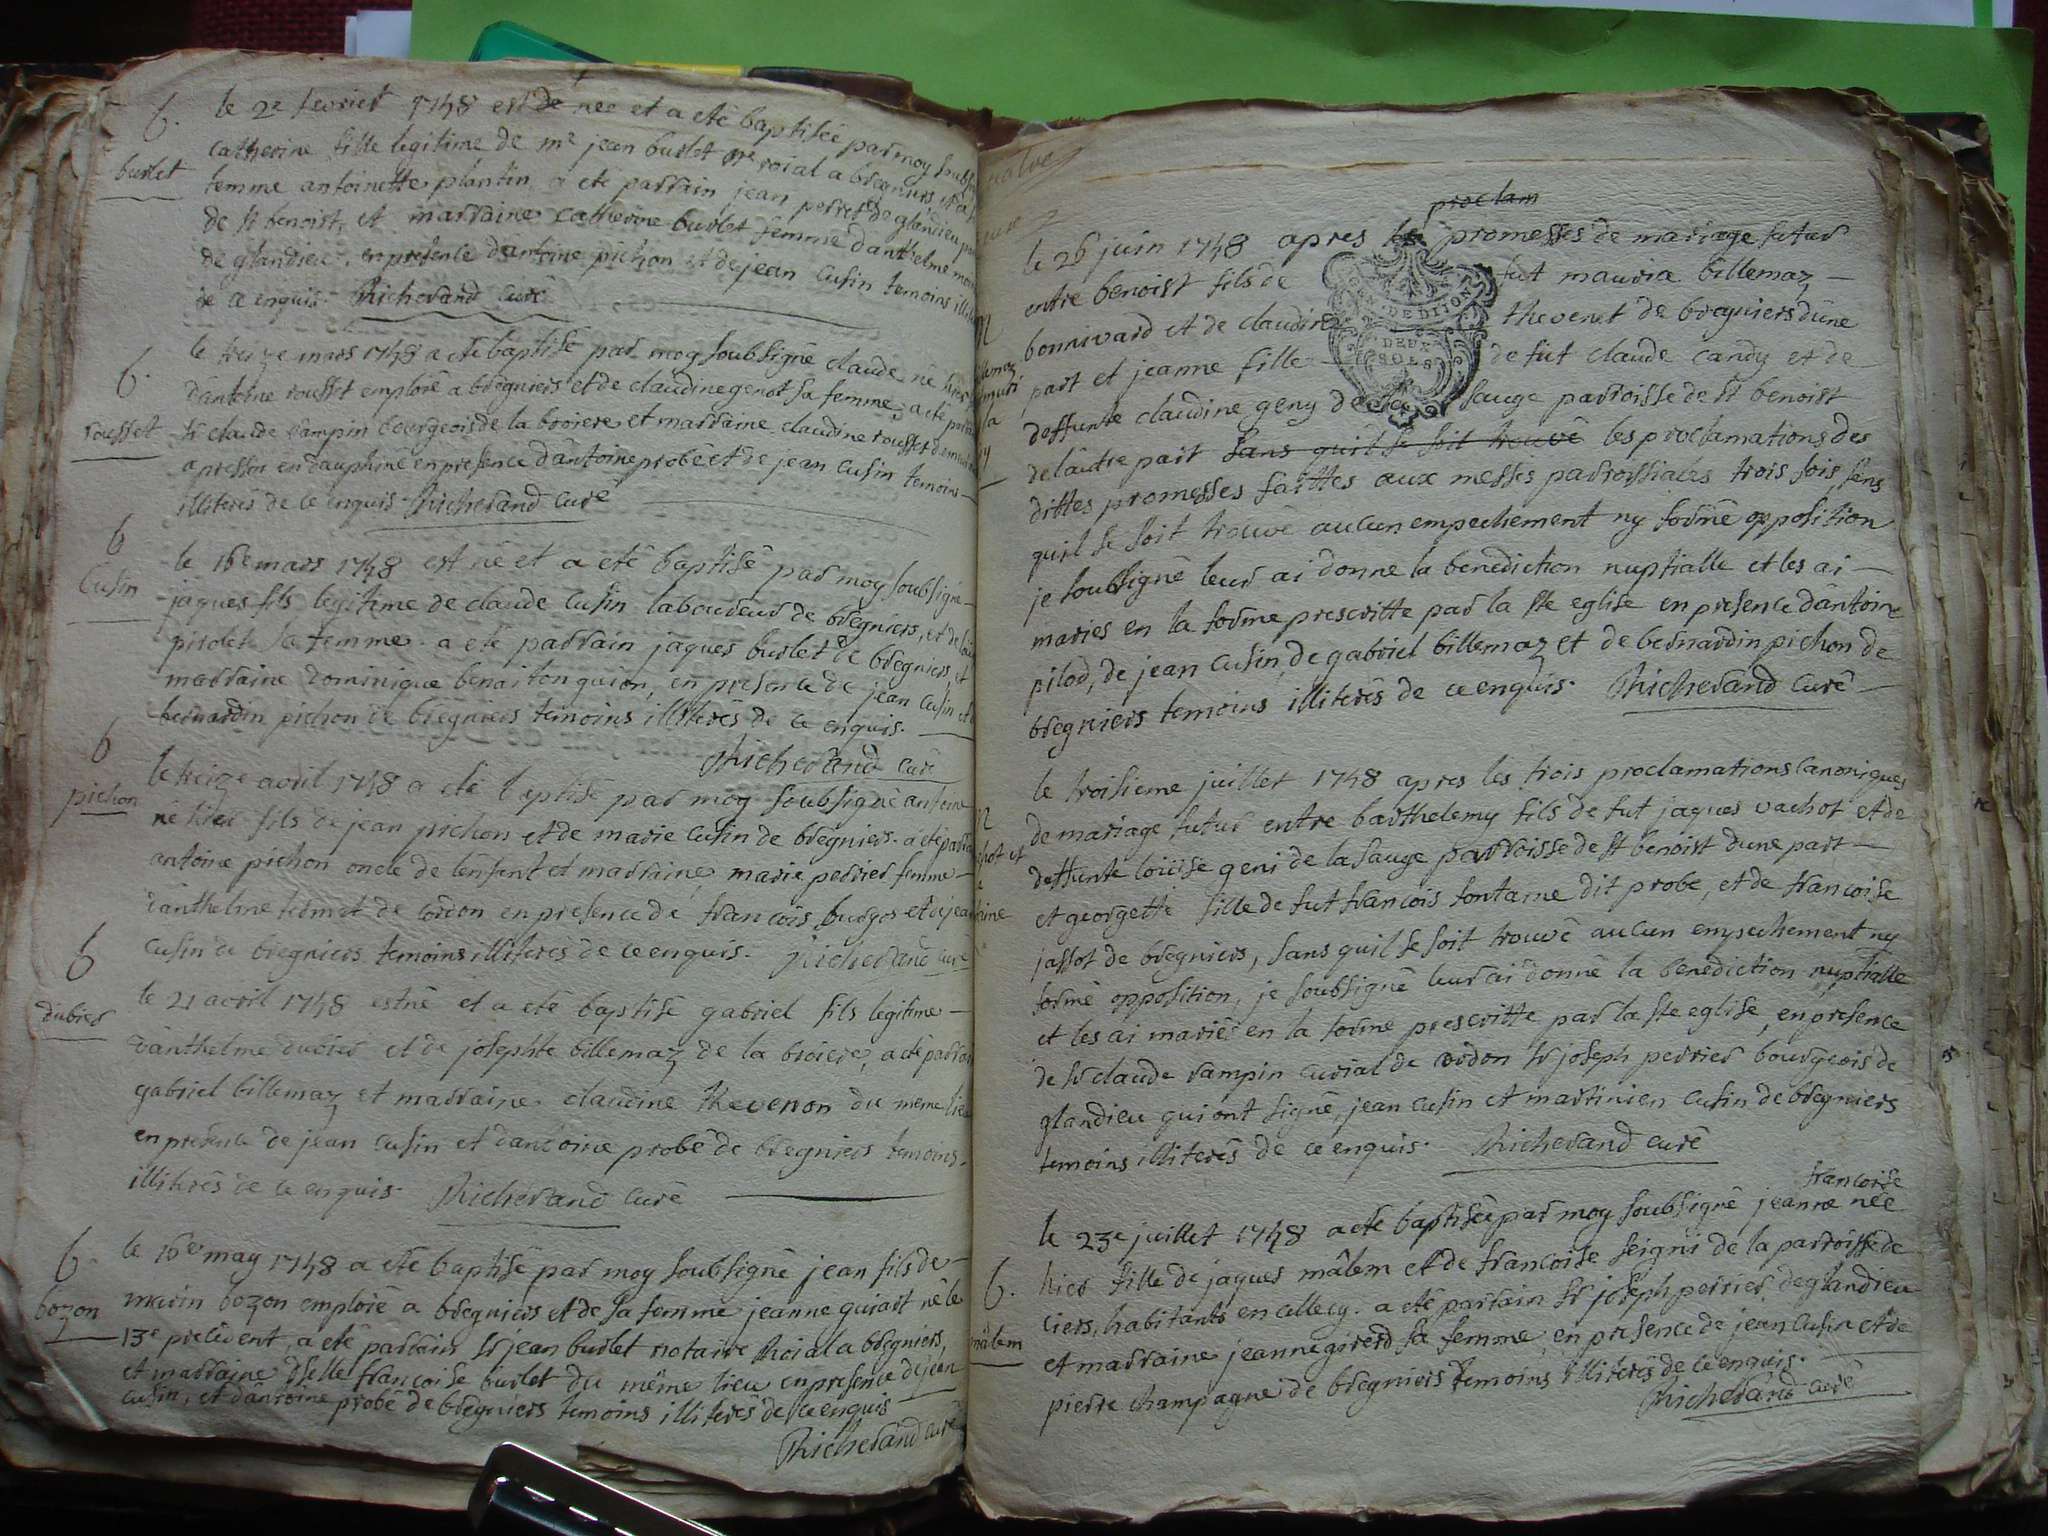 b.
burlet
le 2e fevrier 1748 est de née et a eté baptisée par moy soubs
catherine fille legitime de me jean burlet nre roial a bregniers, et d
femme antoinette plantin a eté parrain jean perret de glandieu
de st benoist, et marraine catherine burlet femme d'anthelme
de glandieu, en presence d'antoine pichon et de jean cusin temoins illit
de ce enquis. Richerand curé
b.
rousset
le treize mars 1748 a eté baptisé par moy soubsigné claude né hier
d'antoine rousset emploié a bregniers et de claudine genot sa femme, a eté
sr claude rampin bourgeois de la broiere et marraine claudine rousset
apressin en dauphiné en presence d'antoine probé et de jean cusin temoins
illiterés de ce enquis Richerand curé
b
Cusin
le 16e mars 1748 est né et a eté baptisé par moy soubsigné
jaques fils legitime de claude cusin laboureur de bregniers, et de
pirolet sa femme. a eté parrain jaques burlet de bregniers et
marraine dominique benaiton guion, en presence de jean cusin et
bernardin pichon de bregniers temoins illiterés de ce enquis.
Richerand curé
b
pichon
le treize avril 1748 a eté baptisé par moy soubsigné antoine
né hier fils de jean pichon et de marie cusin de bregniers. a eté parra
antoine pichon oncle de l'enfant et marraine marie perrier femme
d'anthelme de cordon en presence de françois burgos et de jean
cusin de bregniers temoins illiterés de ce enquis. Richerand curé
b
dubier
le 21 avril 1748 est né et a eté baptisé gabriel fils legitime
d'anthelme et de josephte billemaz de la broiere, a eté parrai
gabriel billemaz et marraine claudine thevenon du meme lieu
en presence de jean cusin et d'antoine probé de bregniers temoins
illiterés de ce enquis. Richerand curé
b.
bozon
le 16e may 1748 a eté baptisé par moy soubsigné jean fils de
bozon emploié a bregniers et de sa femme jeanne guiart né le
13e precedent, a eté parrain sr jean burlet notaire Roial a bregniers,
et marraine dselle françoise burlet du même lieu en presence de jean
cusin, et d'antoine probé de bregniers temoins illiterés de ce enquis
Richerand curé
proclam
le 26 juin 1748 apres les promesses de mariage futur
entre benoist fils de fut maurix billemaz
bonnivard et de claudine thevenet de bregniers d'une
part et jeanne fille de fut claude candy et de
deffunte claudine geny de la sauge parroisse de st benoist
de l'autre part sans quil se soit trouvé les proclamations des
dittes promesses faittes aux messes parroissiales trois fois, sens
quil se soit trouvé aucun empechement ny formé opposition
je soubsigné leur ai donné la benediction nuptialle et les ai
mariés en la forme prescritte par la ste eglise en presence d'antoine
pilod, de jean cusin, de gabriel billemaz et de bernardin pichon de
bregniers temoins illiterés de ce enquis. Richerand curé
le troisieme juillet 1748 apres les trois proclamations canoniques
de mariage futur entre barthelemy fils de fut jaques vachot et de
deffunte loüise geni de la sauge parroisse de st benoist d'une part
et georgette fille de fut françois fontaine dit probe, et de françoise
jassot de bregniers, sans quil se soit trouvé aucun empechement ny
formé opposition, je soubsigné leur ai donné la benediction nuptialle
et les ai mariés en la forme prescritte par la ste eglise, en presence
de sr claude rampin curial de cordon sr joseph perrier bourgeois de
glandieu qui ont signé, jean cusin et martinien cusin de bregniers
temoins illiterés de ce enquis. Richerand curé
françoise
le 23e juillet 1748 a eté baptisée par moy soubsigné jeanne née
b.
mâlem
hier fille de jaques mâlem et de françoise seigni de la parroisse de
ciers, habitants en cellecy. a eté parrain sr joseph perrier, de glandieu
et marraine jeanne girerd sa femme, en presence de jean cusin et de
pierre champagne de bregniers temoins illiterés de ce enquis.
Richerand curé
GEN. DE DIION
DEUX
SOLS